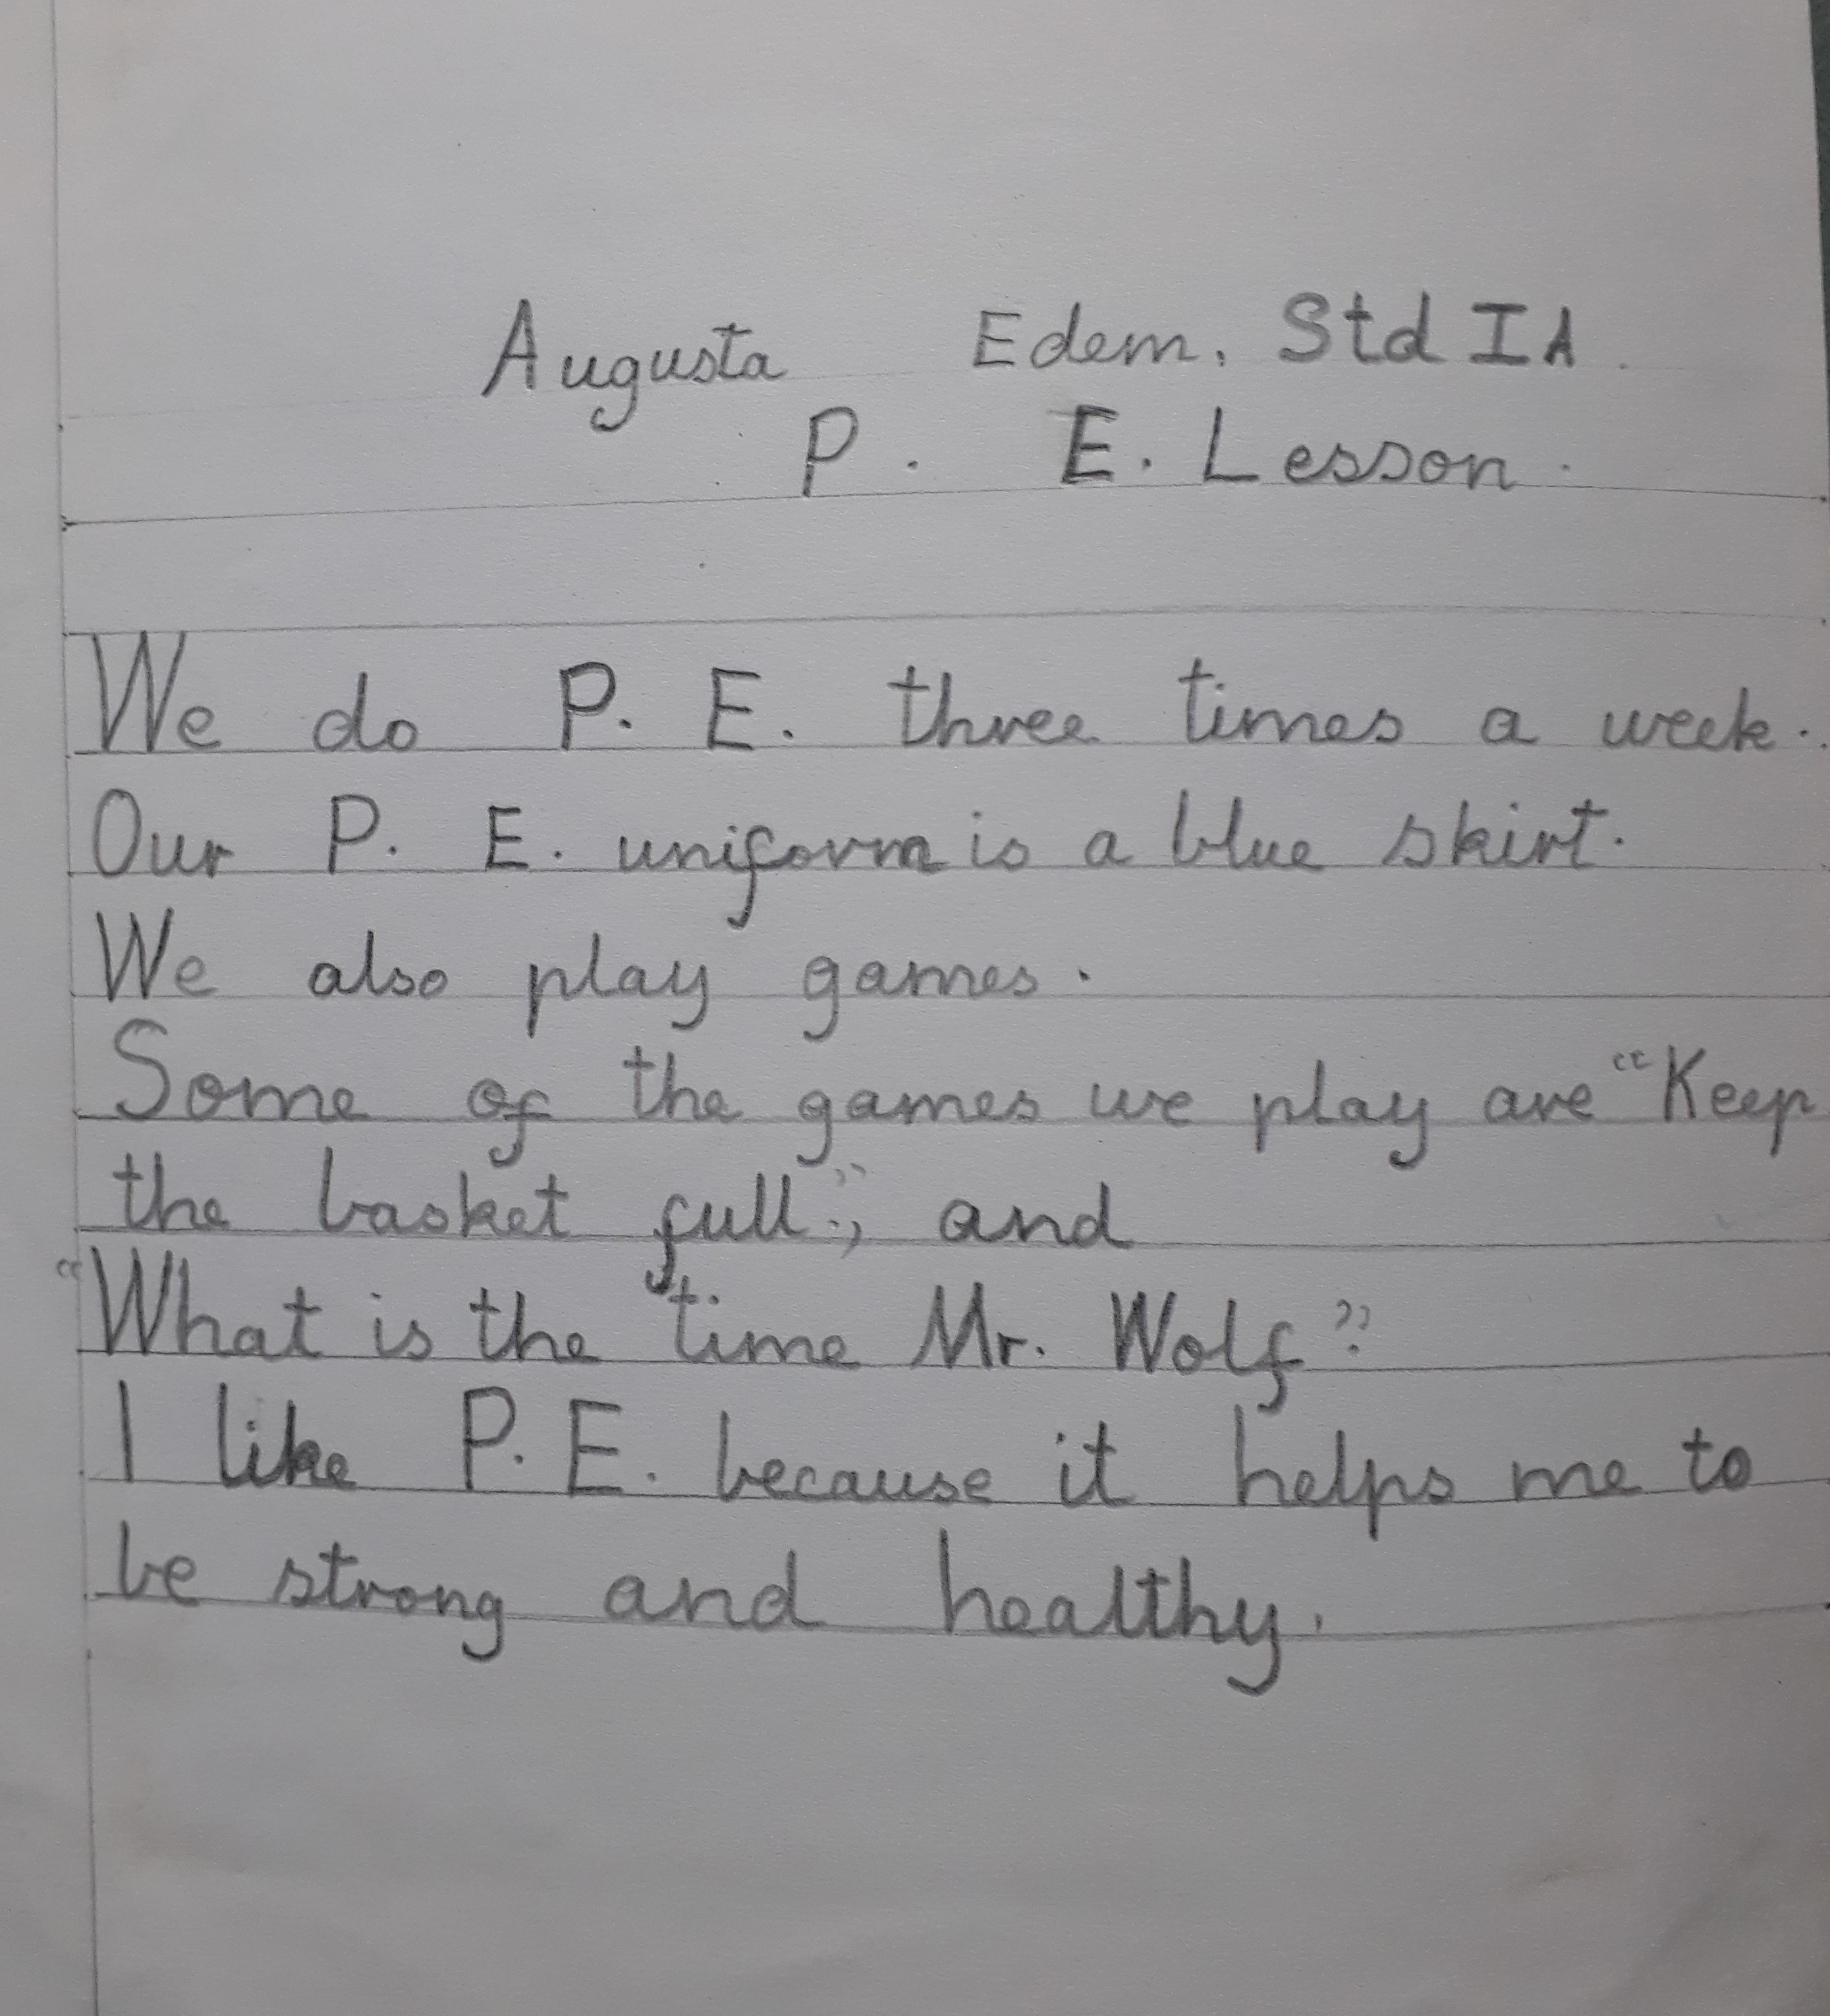 Augusta Edem. Std IA.
P. E. Lesson.
We do P. E. three times a week.
Our P. E. uniform is a blue skirt.
We also play games.
Some of the games we play are "Keep
the basket full", and
"What is the time Mr. Wolf"?
I like P. E. because it helps me to
be strong and healthy.